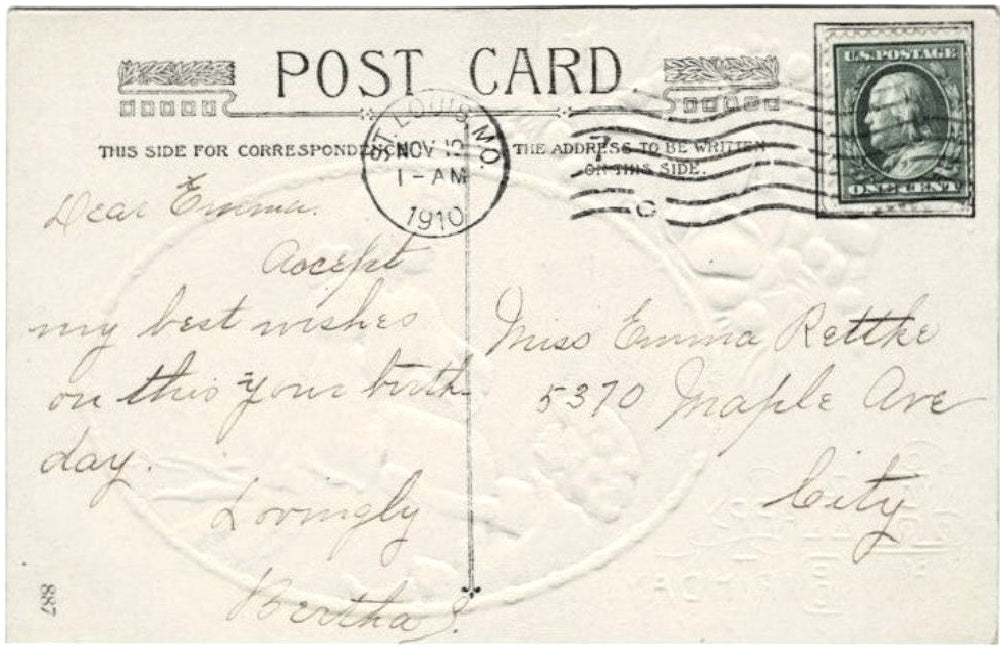 POST CARD
THIS SIDE FOR CORRESPONDENCE
THE ADDRESS TO BE WRITTEN
ON THIS SIDE.
ST. LOUIS, MO.
NOV 12
1-AM
1910
7
U.S. POSTAGE
ONE CENT
Dear Emma.
Accept
my best wishes
on this your birth
day.
Lovingly
Bertha S.
Miss Emma Rettke
5370 Maple Ave
City
887